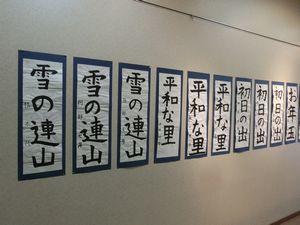 雪の連山
雪の連山
雪の連山
平和な里
平和な里
平和な里
初日の出
初日の出
初日の出
お年玉